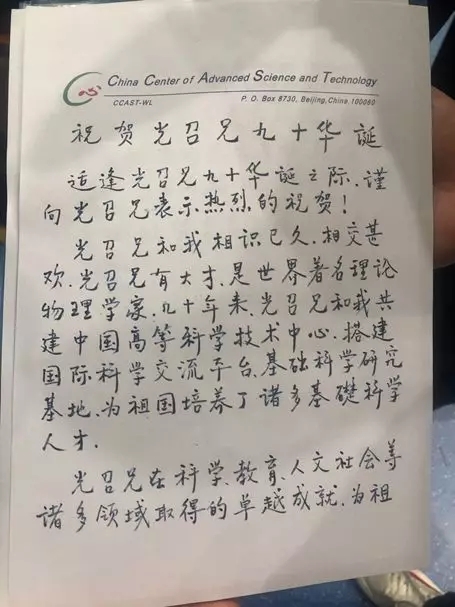 China Center of Advanced Science and Technology
CCAST-WL P. O. Box 8730, Beijing, China 100080
祝贺光召兄九十华诞
适逢光召兄九十华诞之际，谨
向光召兄表示热烈的祝贺！
光召兄和我相识已久，相交甚
欢。光召兄有大才，是世界著名理论
物理学家。几十年来，光召兄和我共
建中国高等科学技术中心，搭建
国际科学交流平台、基础科学研究
基地，为祖国培养了诸多基礎科学
人才。
光召兄在科学、教育、人文社会等
诸多领域取得的卓越成就，为祖